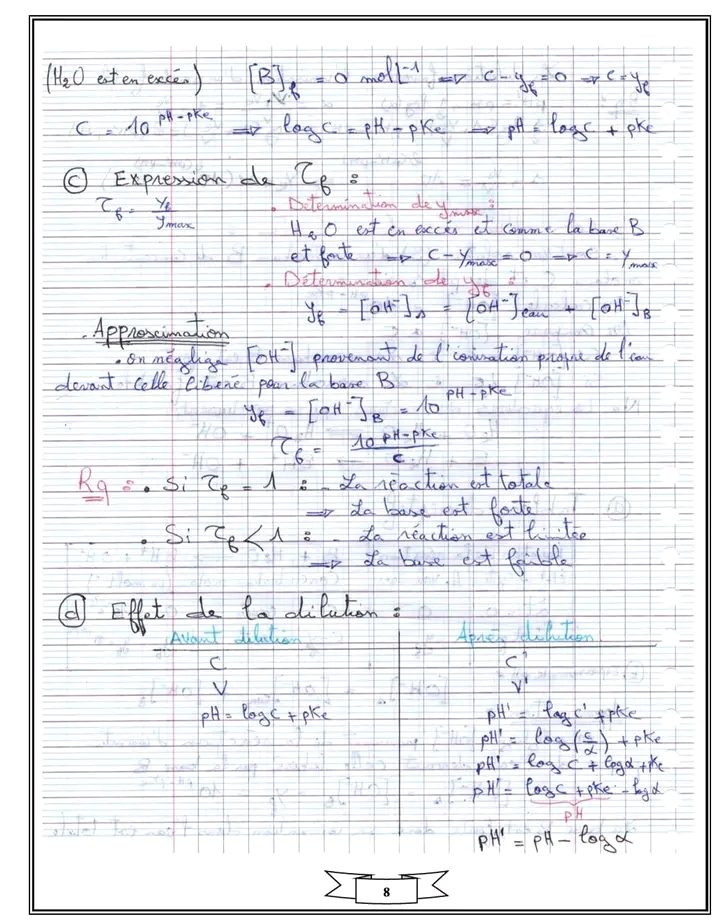 (H₂O est en excés) [B]f = 0 mol L⁻¹ ⇒ C - yf = 0 ⇒ C = yf
C = 10^(pH - pKe) ⇒ log C = pH - pKe ⇒ pH = log C + pKe
ⓒ Expression de τf :
τf = yf / ymax
• Détermination de ymax :
H₂O est en excés et comme la base B
et forte ⇒ C - ymax = 0 ⇒ C = ymax
• Détermination de yf :
yf = [OH⁻]s = [OH⁻]eau + [OH⁻]B
. Approximation
• on néglige [OH⁻] provenant de l'ionisation propre de l'eau
devant celle libéré par la base B
yf = [OH⁻]B = 10^(pH - pKe)
τf = 10^(pH - pKe) / C
Rq : • Si τf = 1 : - La réaction est totale
⇒ La base est forte
• Si τf < 1 : - La réaction est limitée
⇒ La base est faible
ⓓ Effet de la dilution :
Avant dilution Après dilution
C C'
V V'
pH = log C + pKe pH' = log C' + pKe
pH' = log (C/α) + pKe
pH' = log C + log α + pKe
pH' = log C + pKe - log α
pH
pH' = pH - log α
8